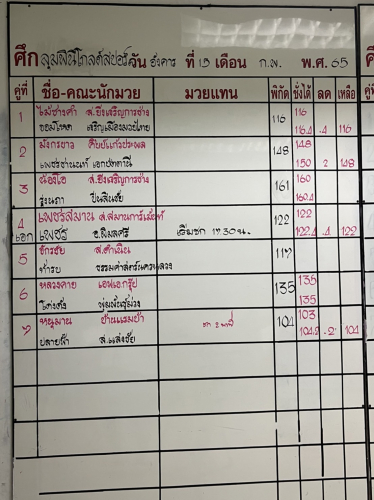 ศึก ลุมพินีโกลด์สปอร์ต วัน อังคาร ที่ 15 เดือน ก.พ. พ.ศ. 65
คู่ที่ ชื่อ-คณะนักมวย มวยแทน พิกัด ชั่งได้ ลด เหลือ
1 ไม้ซางคำ ส.ยิ่งเจริญการช่าง 116 116
จอมโหด เจริญเมืองมวยไทย 116.4 .4 116
2 มังกรขาว 148 148
เพชรซานแบ้ เอกปัตตานี 150 2 148
3 น้องโอ ส.ยิ่งเจริญการช่าง 161 160
ปืนสิงชัย 160.4
4 เพชรสมาน ส.สมานการ์เม้นท์ 122 122
เอก เพชร อ.พิมลศรี เริ่มชก 17.30 น. 122.4 .4 122
5 จักรชัย ส.ดำเนิน 117
ธรรมศาสตร์นครหลวง
6 หลวงกาย เอฟเอกรุ๊ป 135 135
พุ่มพันธุ์ม่วง 135
7 หนุมาน บ้านแรมบ้า ชก 2 นาที 104 103
ปลายฟ้า 104.2 .2 104